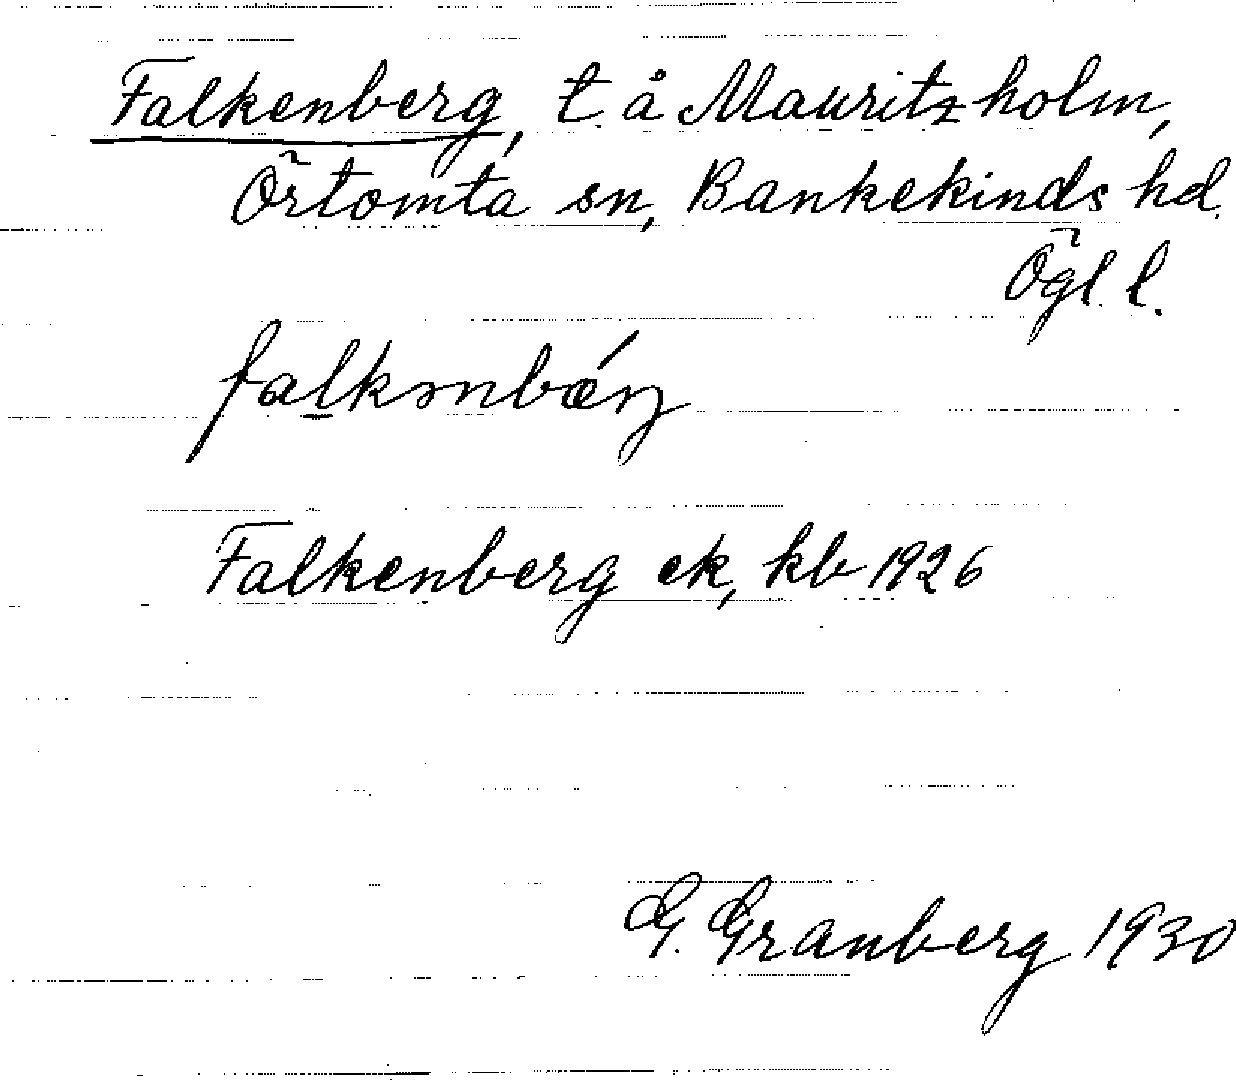 Falkenberg, t. å Mauritzholm,
Örtomta sn, Bankekinds hd.
Ögl. l.
Falkenberg ek, kb 1926
G. Granberg 1930